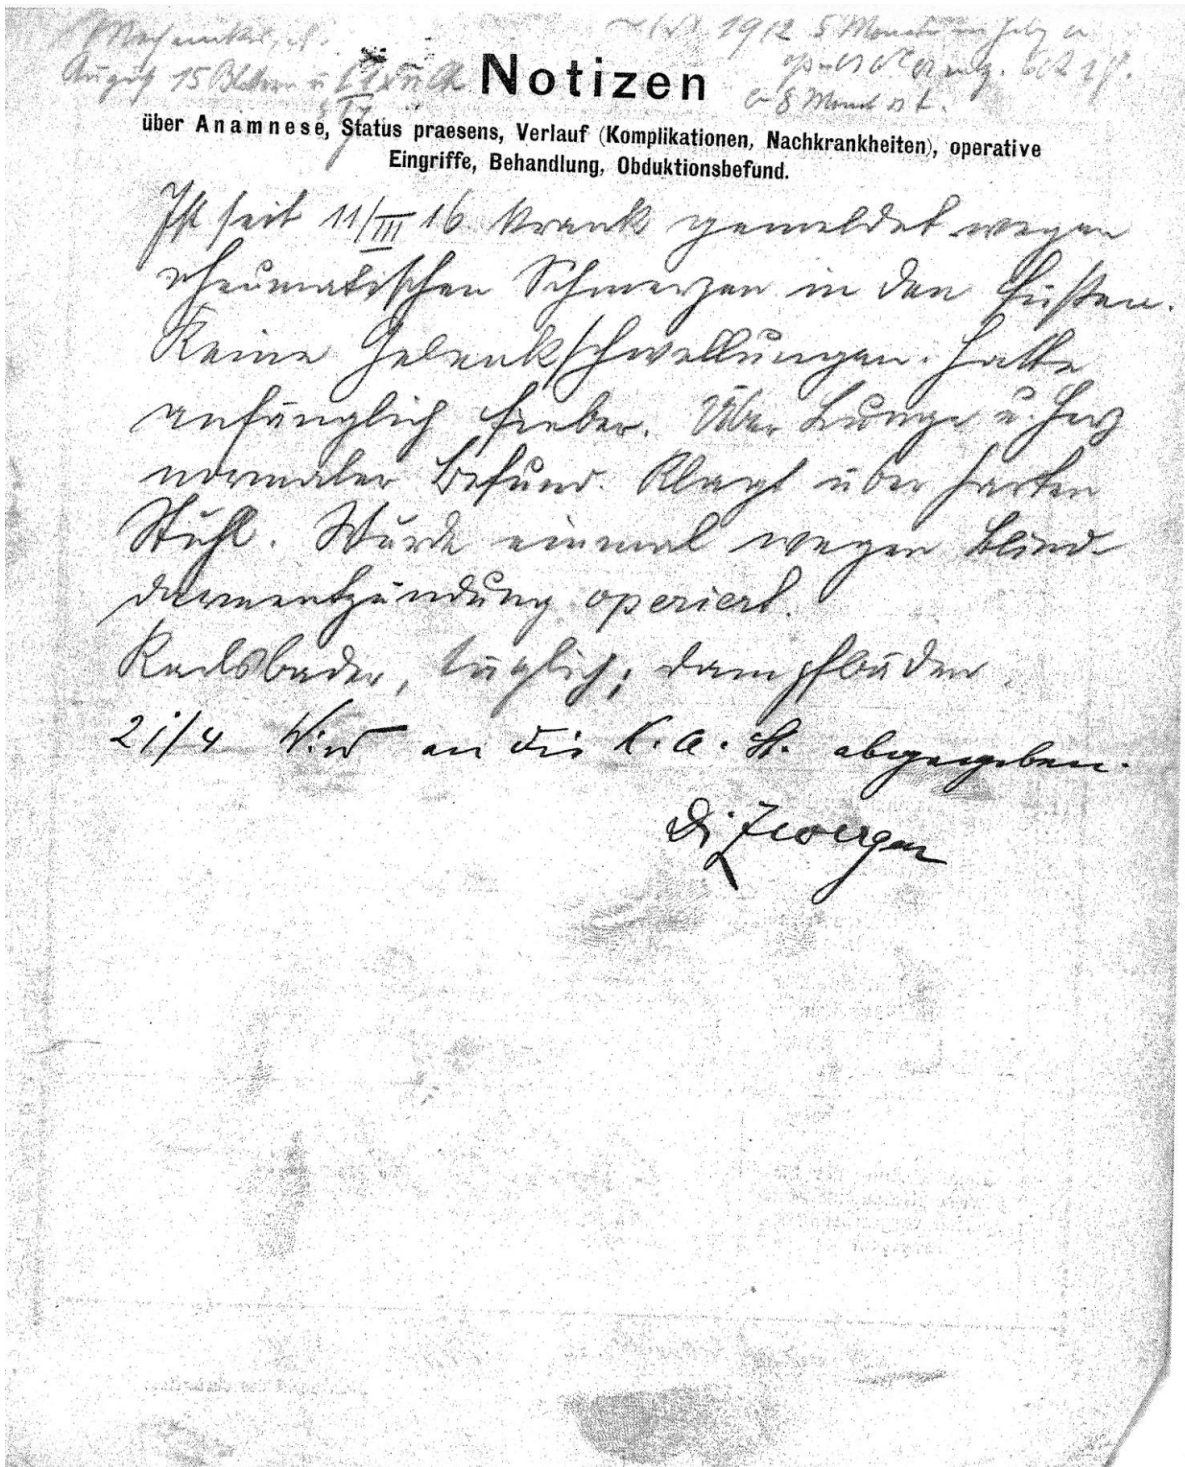 1912 5 Monate in
August 15
8 Monat
Notizen
über Anamnese, Status praesens, Verlauf (Komplikationen, Nachkrankheiten), operative
Eingriffe, Behandlung, Obduktionsbefund.
Ist seit 11/III 16. krank gemeldet wegen
rheumatischen Schmerzen in den Füßen.
Keine Gelenkschwellungen. Hatte
anfänglich Fieber. Über Lunge u. Herz
normaler Befund. Klagt über harten
Stuhl. Wurde einmal wegen Blind-
darmentzündung operiert.
Karlsbader, täglich; Dampfbäder.
21/4 Wird an die K. a. St. abgegeben.